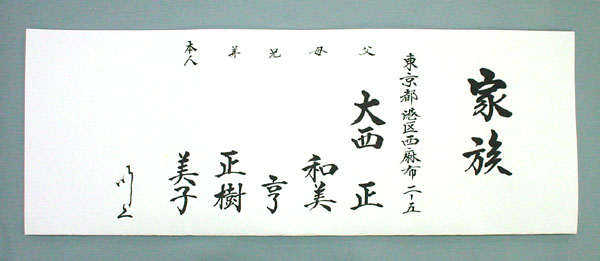 家族
東京都港区西麻布二ー五
父 大西 正
母 和美
兄 亨
弟 正樹
本人 美子
以上